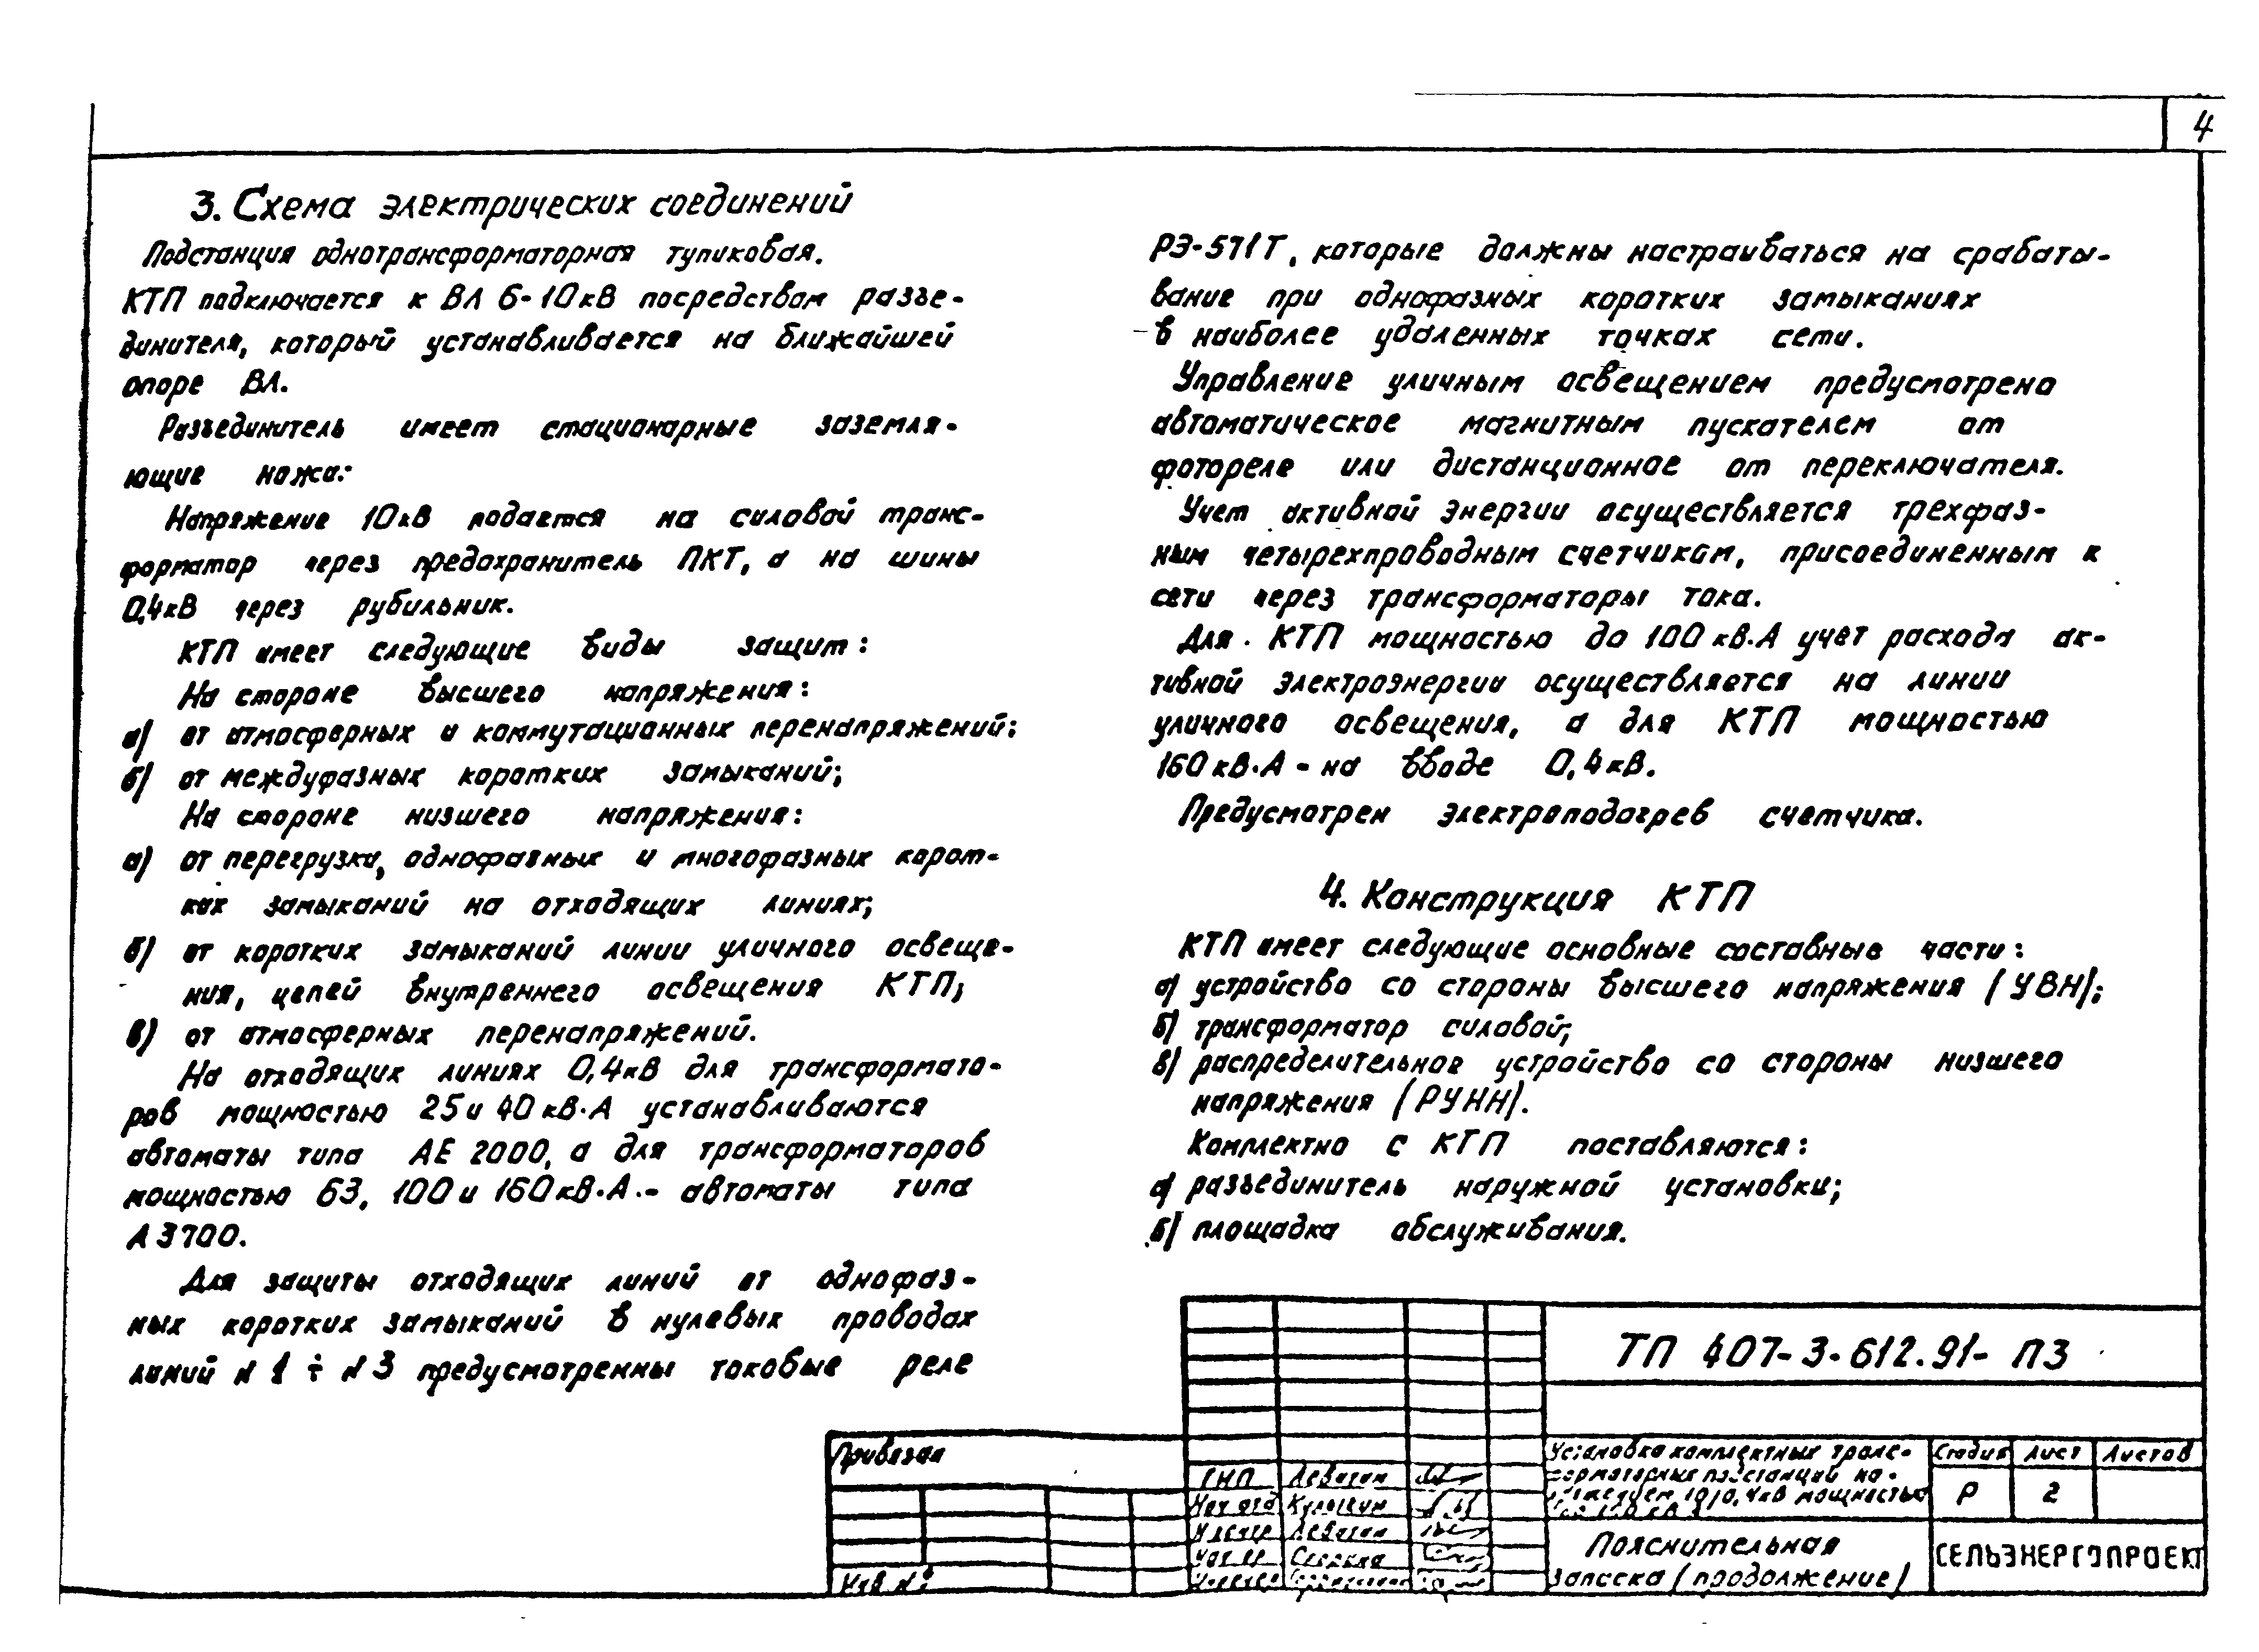 4
3. Схема электрических соединений
Подстанция однотрансформаторная тупиковая.
КТП подключается к ВЛ 6-10кВ посредствам разъе-
динителя, который устанавливается на ближайшей
опоре ВЛ.
Разъединитель имеет стационарные заземля-
ющие ножа:
Напряжение 10кВ подается на силовой транс-
форматор через предохранитель ПКТ, а на шины
0,4кВ через рубильник.
КТП имеет следующие виды защит:
На стороне высшего напряжения:
а) от атмосферных и коммутационных перенапряжений:
б) от междуфазных коротких замыканий;
На стороне низшего напряжения:
а) от перегрузки, однофазных и многофазных корот-
ких замыканий на отходящих линиях;
б) от коротких замыканий линии уличного освеще-
ния, цепей внутреннего освещения КТП;
в) от атмосферных перенапряжений.
На отходящих линиях 0,4кВ для трансформато-
ров мощностью 25 и 40 кВ·А устанавливаются
автоматы типа АЕ 2000, а для трансформаторов
мощностью 63, 100 и 160кВ·А.- автоматы типа
А3700.
Для защиты отходящих линий от однофаз-
ных коротких замыканий в нулевых проводах
линий N 1 ÷ N 3 предусмотренны токовые реле
РЭ-571Т, которые должны настраиваться на срабаты-
вание при однофазных коротких замыканиях
в наиболее удаленных точках сети.
Управление уличным освещением предусмотрено
автоматическое магнитным пускателем от
фотореле или дистанционное от переключателя.
Учет активной энергии осуществляется трехфаз-
ным четырехпроводным счетчиком, присоединенным к
сети через трансформаторы тока.
Для КТП мощностью до 100 кВ·А учет расхода ак-
тивной электроэнергии осуществляется на линии
уличного освещения, а для КТП мощностью
160кВ·А - на вводе 0,4кВ.
Предусмотрен электроподогрев счетчика.
4. Конструкция КТП
КТП имеет следующие основные составные части:
а) устройство со стороны высшего напряжения (УВН);
б) трансформатор силовой;
в) распределительное устройство со стороны низшего
напряжения (РУНН).
Комплектно с КТП поставляются:
а) разъединитель наружной установки;
б) площадка обслуживания.
ТП 407-3-612.91- ПЗ
Привязан
Инв №
ГИП Левитан
Нач отд Кулыгин
Н контр Левитан
Установка комплектных транс-
форматорных подстанций на-
10/0,4кВ мощностью
Стадия Лист Листов
Р 2
Пояснительная
записка (продолжение)
СЕЛЬЭНЕРГОПРОЕКТ